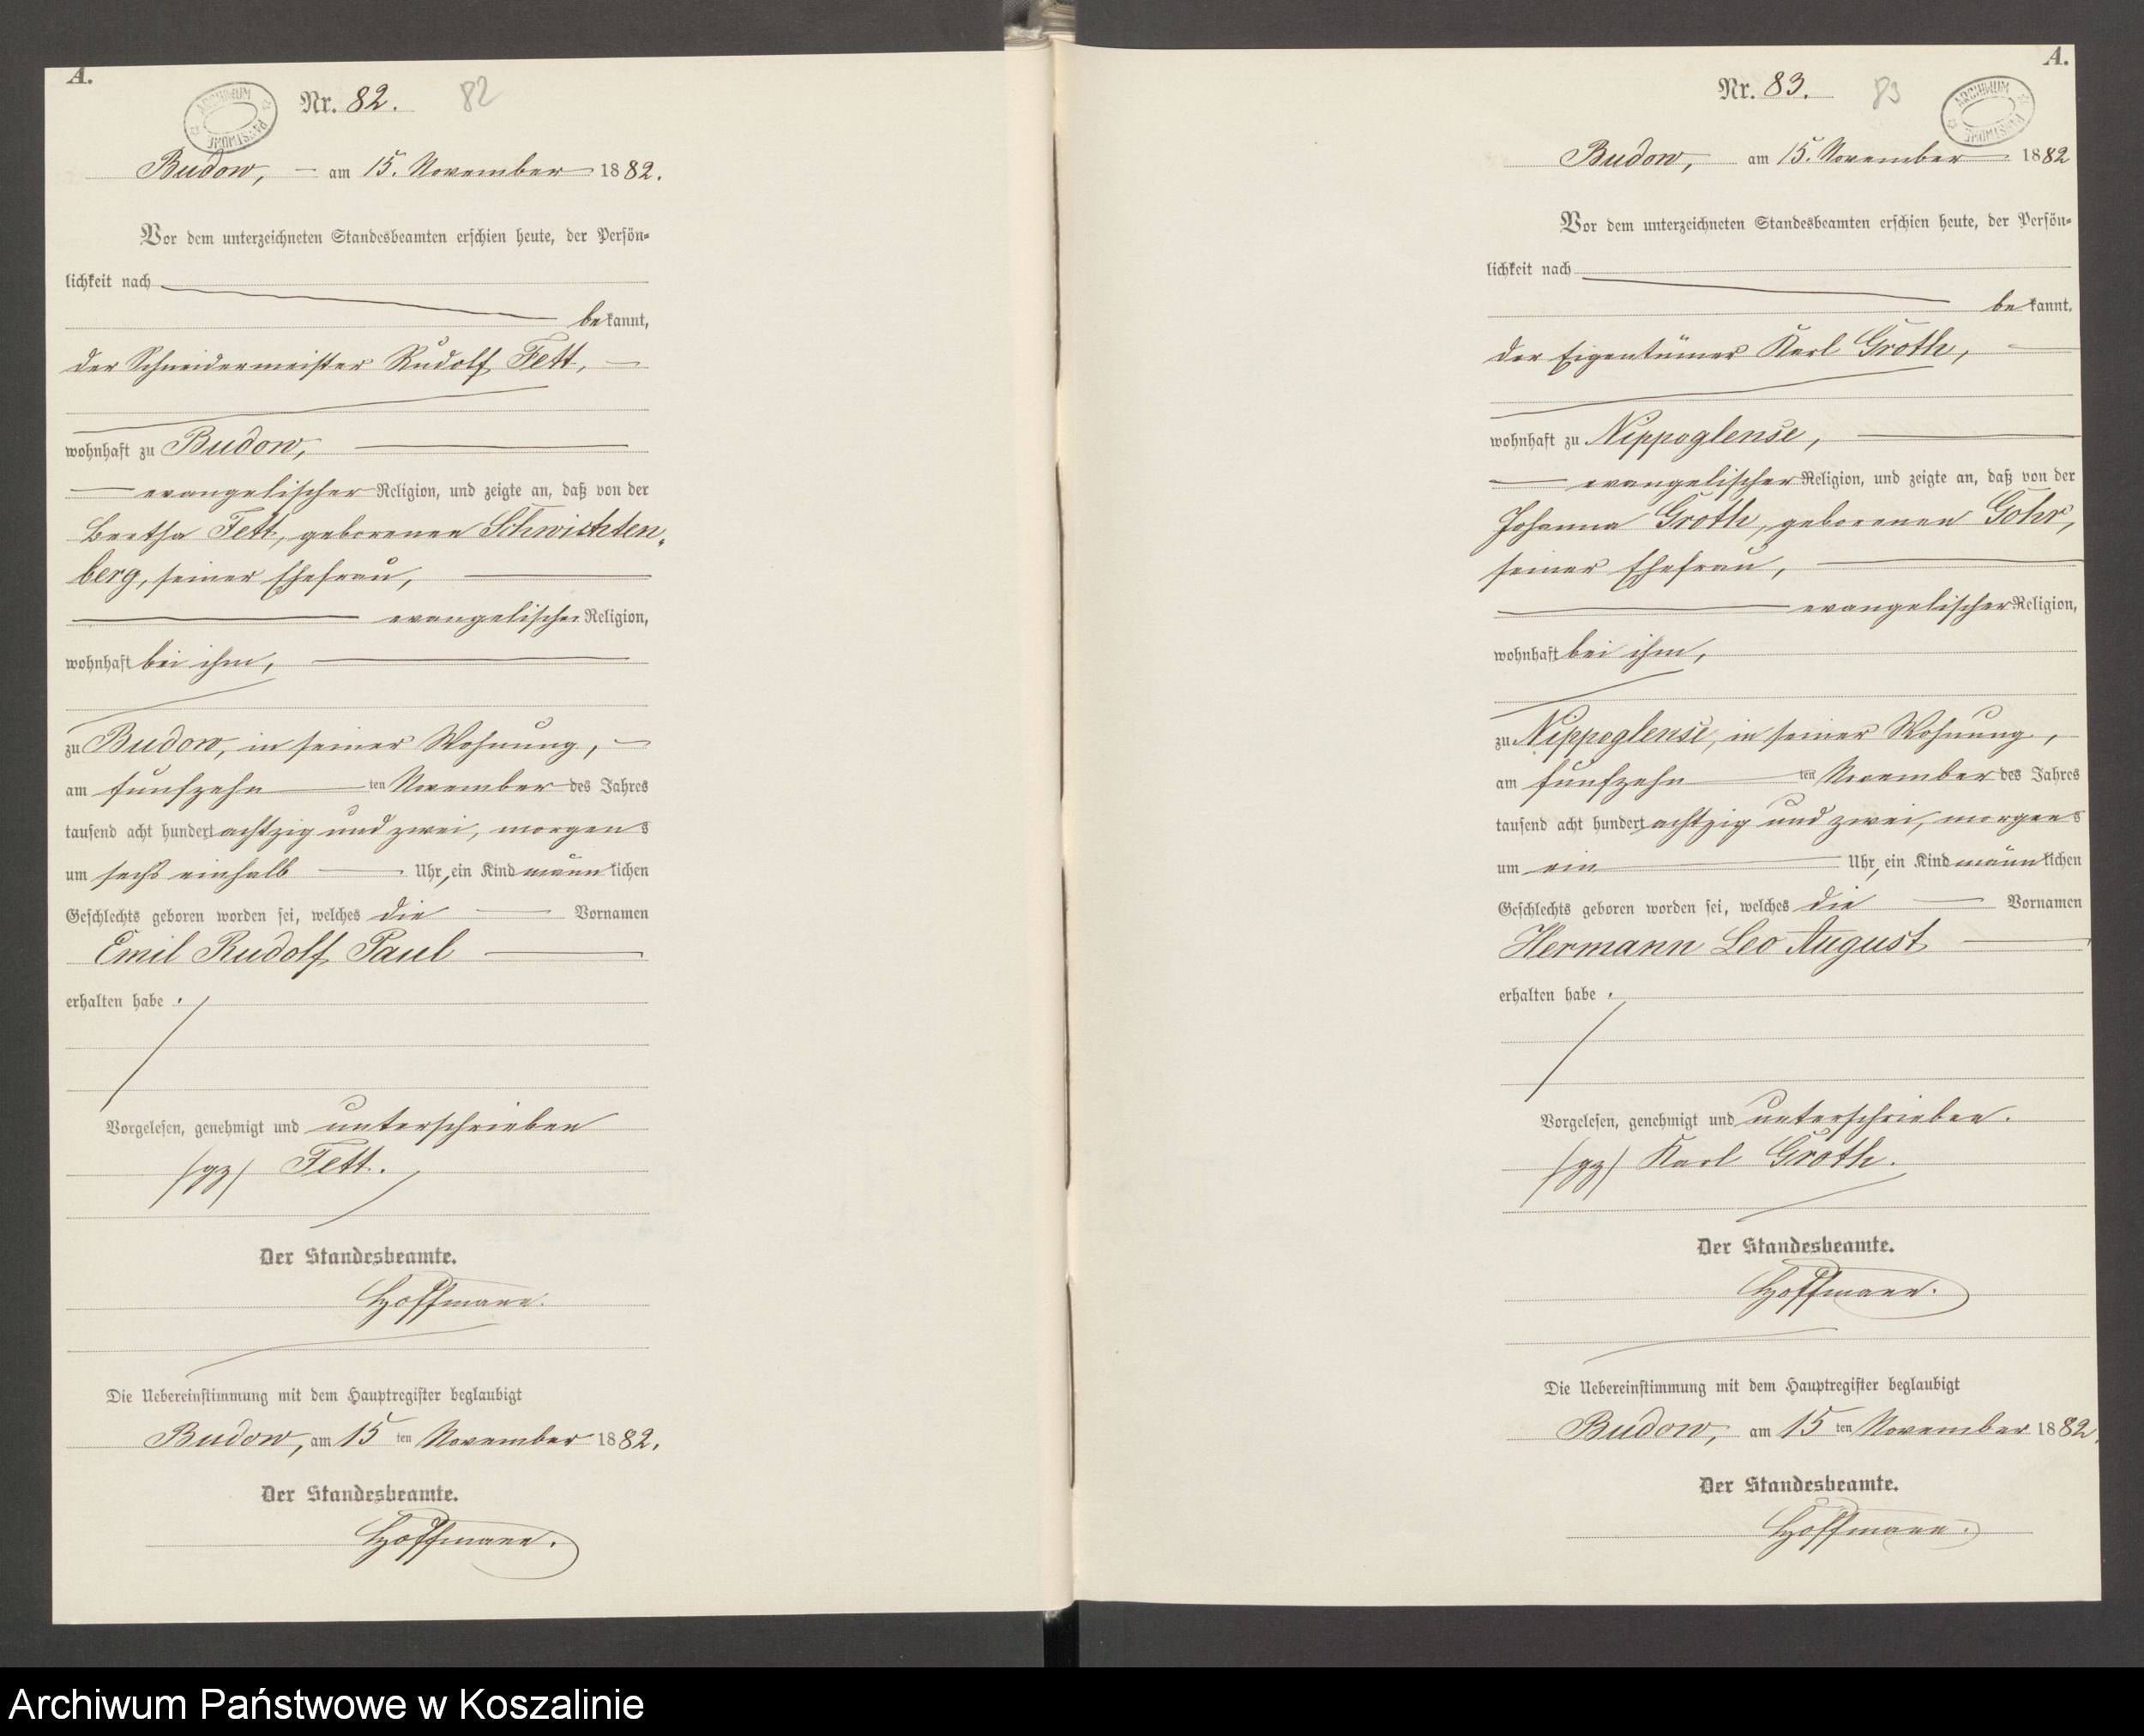 A.
ARCHIWUM PAŃSTWOWE
Nr. 82. 82
Budow, am 15. November 1882.
Vor dem unterzeichneten Standesbeamten erschien heute, der Persön-
lichkeit nach
bekannt,
der Schneidermeister Rudolf Fett,
wohnhaft zu Budow,
evangelischer Religion, und zeigte an, daß von der
Bertha Fett, geborenen Schwichten-
berg, seiner Ehefrau,
evangelischer Religion,
wohnhaft bei ihm,
zu Budow, in seiner Wohnung,
am fünfzehn ten November des Jahres
tausend acht hundert achtzig und zwei, morgens
um sechs einhalb Uhr, ein Kind männlichen
Geschlechts geboren worden sei, welches die Vornamen
Emil Rudolf Paul
erhalten habe.
Vorgelesen, genehmigt und unterschrieben
(gz) Fett.
Der Standesbeamte.
Hoffmann.
Die Uebereinstimmung mit dem Hauptregister beglaubigt
Budow, am 15 ten November 1882.
Der Standesbeamte.
Hoffmann.
A.
ARCHIWUM PAŃSTWOWE
Nr. 83. 83
Budow, am 15. November 1882
Vor dem unterzeichneten Standesbeamten erschien heute, der Persön-
lichkeit nach
bekannt,
der Eigentümer Karl Groth,
wohnhaft zu Nippoglense,
evangelischer Religion, und zeigte an, daß von der
Johanna Groth, geborenen Gohr,
seiner Ehefrau,
evangelischer Religion,
wohnhaft bei ihm,
zu Nippoglense, in seiner Wohnung,
am fünfzehn ten November des Jahres
tausend acht hundert achtzig und zwei, morgens
um ein Uhr, ein Kind männlichen
Geschlechts geboren worden sei, welches die Vornamen
Hermann Leo August
erhalten habe.
Vorgelesen, genehmigt und unterschrieben.
(gz) Karl Groth.
Der Standesbeamte.
Hoffmann.
Die Uebereinstimmung mit dem Hauptregister beglaubigt
Budow, am 15 ten November 1882.
Der Standesbeamte.
Hoffmann.
Archiwum Państwowe w Koszalinie